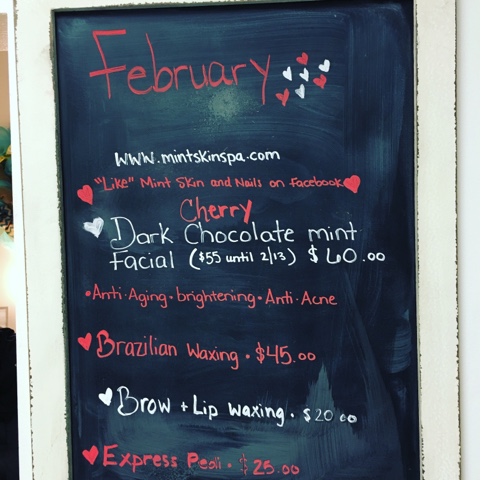 February
www.mintskinspa.com
"Like" Mint Skin and Nails on Facebook
Cherry
Dark Chocolate mint
facial ($55 until 2/13) $60.00
•Anti-Aging•brightening•Anti-Acne
Brazilian Waxing • $45.00
Brow + Lip Waxing • $20.00
Express Pedi • $25.00